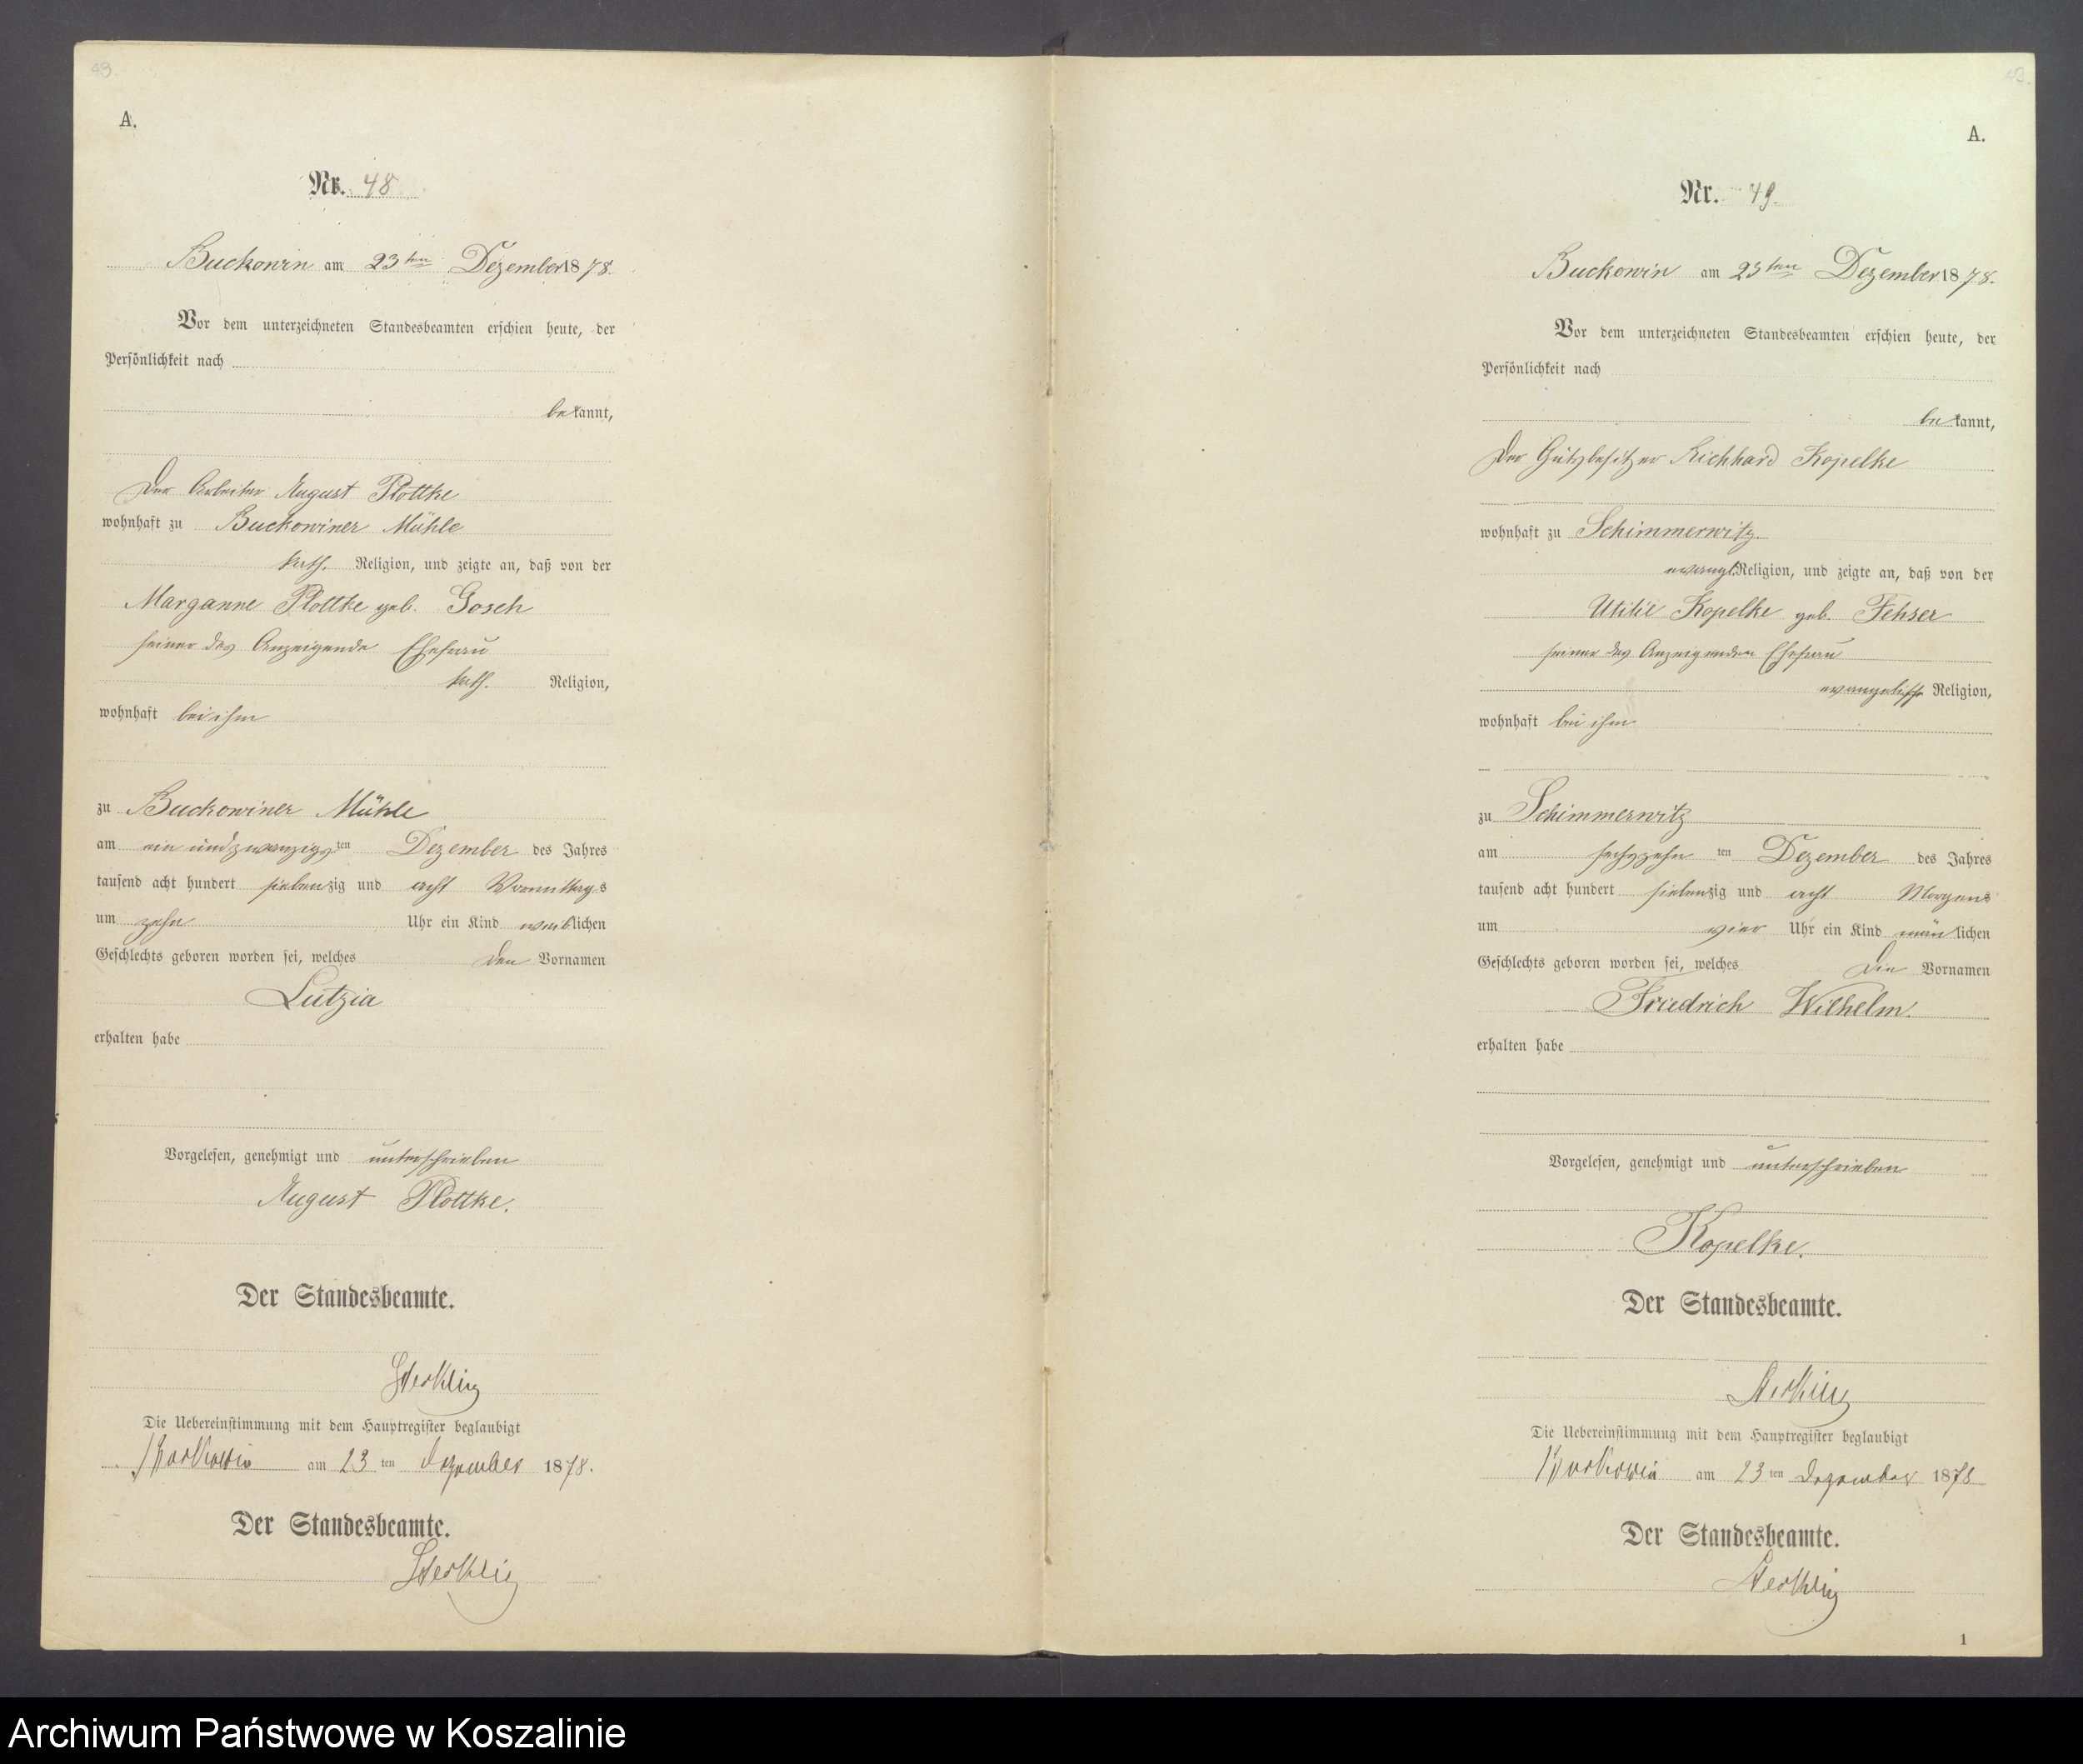 48.
A.
Nr. 48
Buckowin am 23ten Dezember 1878.
Vor dem unterzeichneten Standesbeamten erschien heute, der
Persönlichkeit nach
bekannt,
Der Arbeiter August Plottke
wohnhaft zu Buckowiner Mühle
kath. Religion, und zeigte an, daß von der
Marganne Plottke geb. Gosch
seiner des Anzeigende Ehefrau
kath. Religion,
wohnhaft bei ihm
zu Buckowiner Mühle
am ein und zwanzigsten Dezember des Jahres
tausend acht hundert siebenzig und acht Vormittags
um zehn Uhr ein Kind weiblichen
Geschlechts geboren worden sei, welches den Vornamen
Lutzia
erhalten habe
Vorgelesen, genehmigt und unterschrieben
August Plottke.
Der Standesbeamte.
Die Uebereinstimmung mit dem Hauptregister beglaubigt
Buckowin am 23ten Dezember 1878.
Der Standesbeamte.
A.
Nr. 49.
Buckowin am 23ten Dezember 1878.
Vor dem unterzeichneten Standesbeamten erschien heute, der
Persönlichkeit nach
bekannt,
Der Gutsbesitzer Richhard Kopelke
wohnhaft zu Schimmerwitz
evangl. Religion, und zeigte an, daß von der
Utilie Kopelke geb. Fehser
seiner des Anzeigenden Ehefrau
evangelische Religion,
wohnhaft bei ihm
zu Schimmerwitz
am sechszehnten Dezember des Jahres
tausend acht hundert siebenzig und acht Morgens
um vier Uhr ein Kind mänlichen
Geschlechts geboren worden sei, welches die Vornamen
Friedrich Wilhelm.
erhalten habe
Vorgelesen, genehmigt und unterschrieben
Kopelke.
Der Standesbeamte.
Die Uebereinstimmung mit dem Hauptregister beglaubigt
Buckowin am 23ten Dezember 1878
Der Standesbeamte.
1
Archiwum Państwowe w Koszalinie